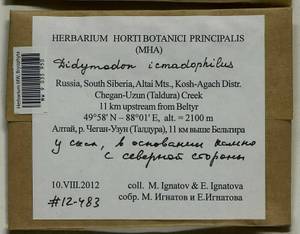 HERBARIUM HORTI BOTANICI PRINCIPALIS
(MHA)
Didymodon icmadophilus
Russia, South Siberia, Altai Mts., Kosh-Agach Distr.
Chegan-Uzun (Taldura) Creek
11 km upstream from Beltyr
49°58' N – 88°01' E, alt. = 2100 m
Алтай, р. Чеган-Узун (Талдура), 11 км выше Бельтира
у скал, в основании
с северной стороны
10.VIII.2012 coll. M. Ignatov & E. Ignatova
#12-483 собр. М. Игнатов и Е.Игнатова